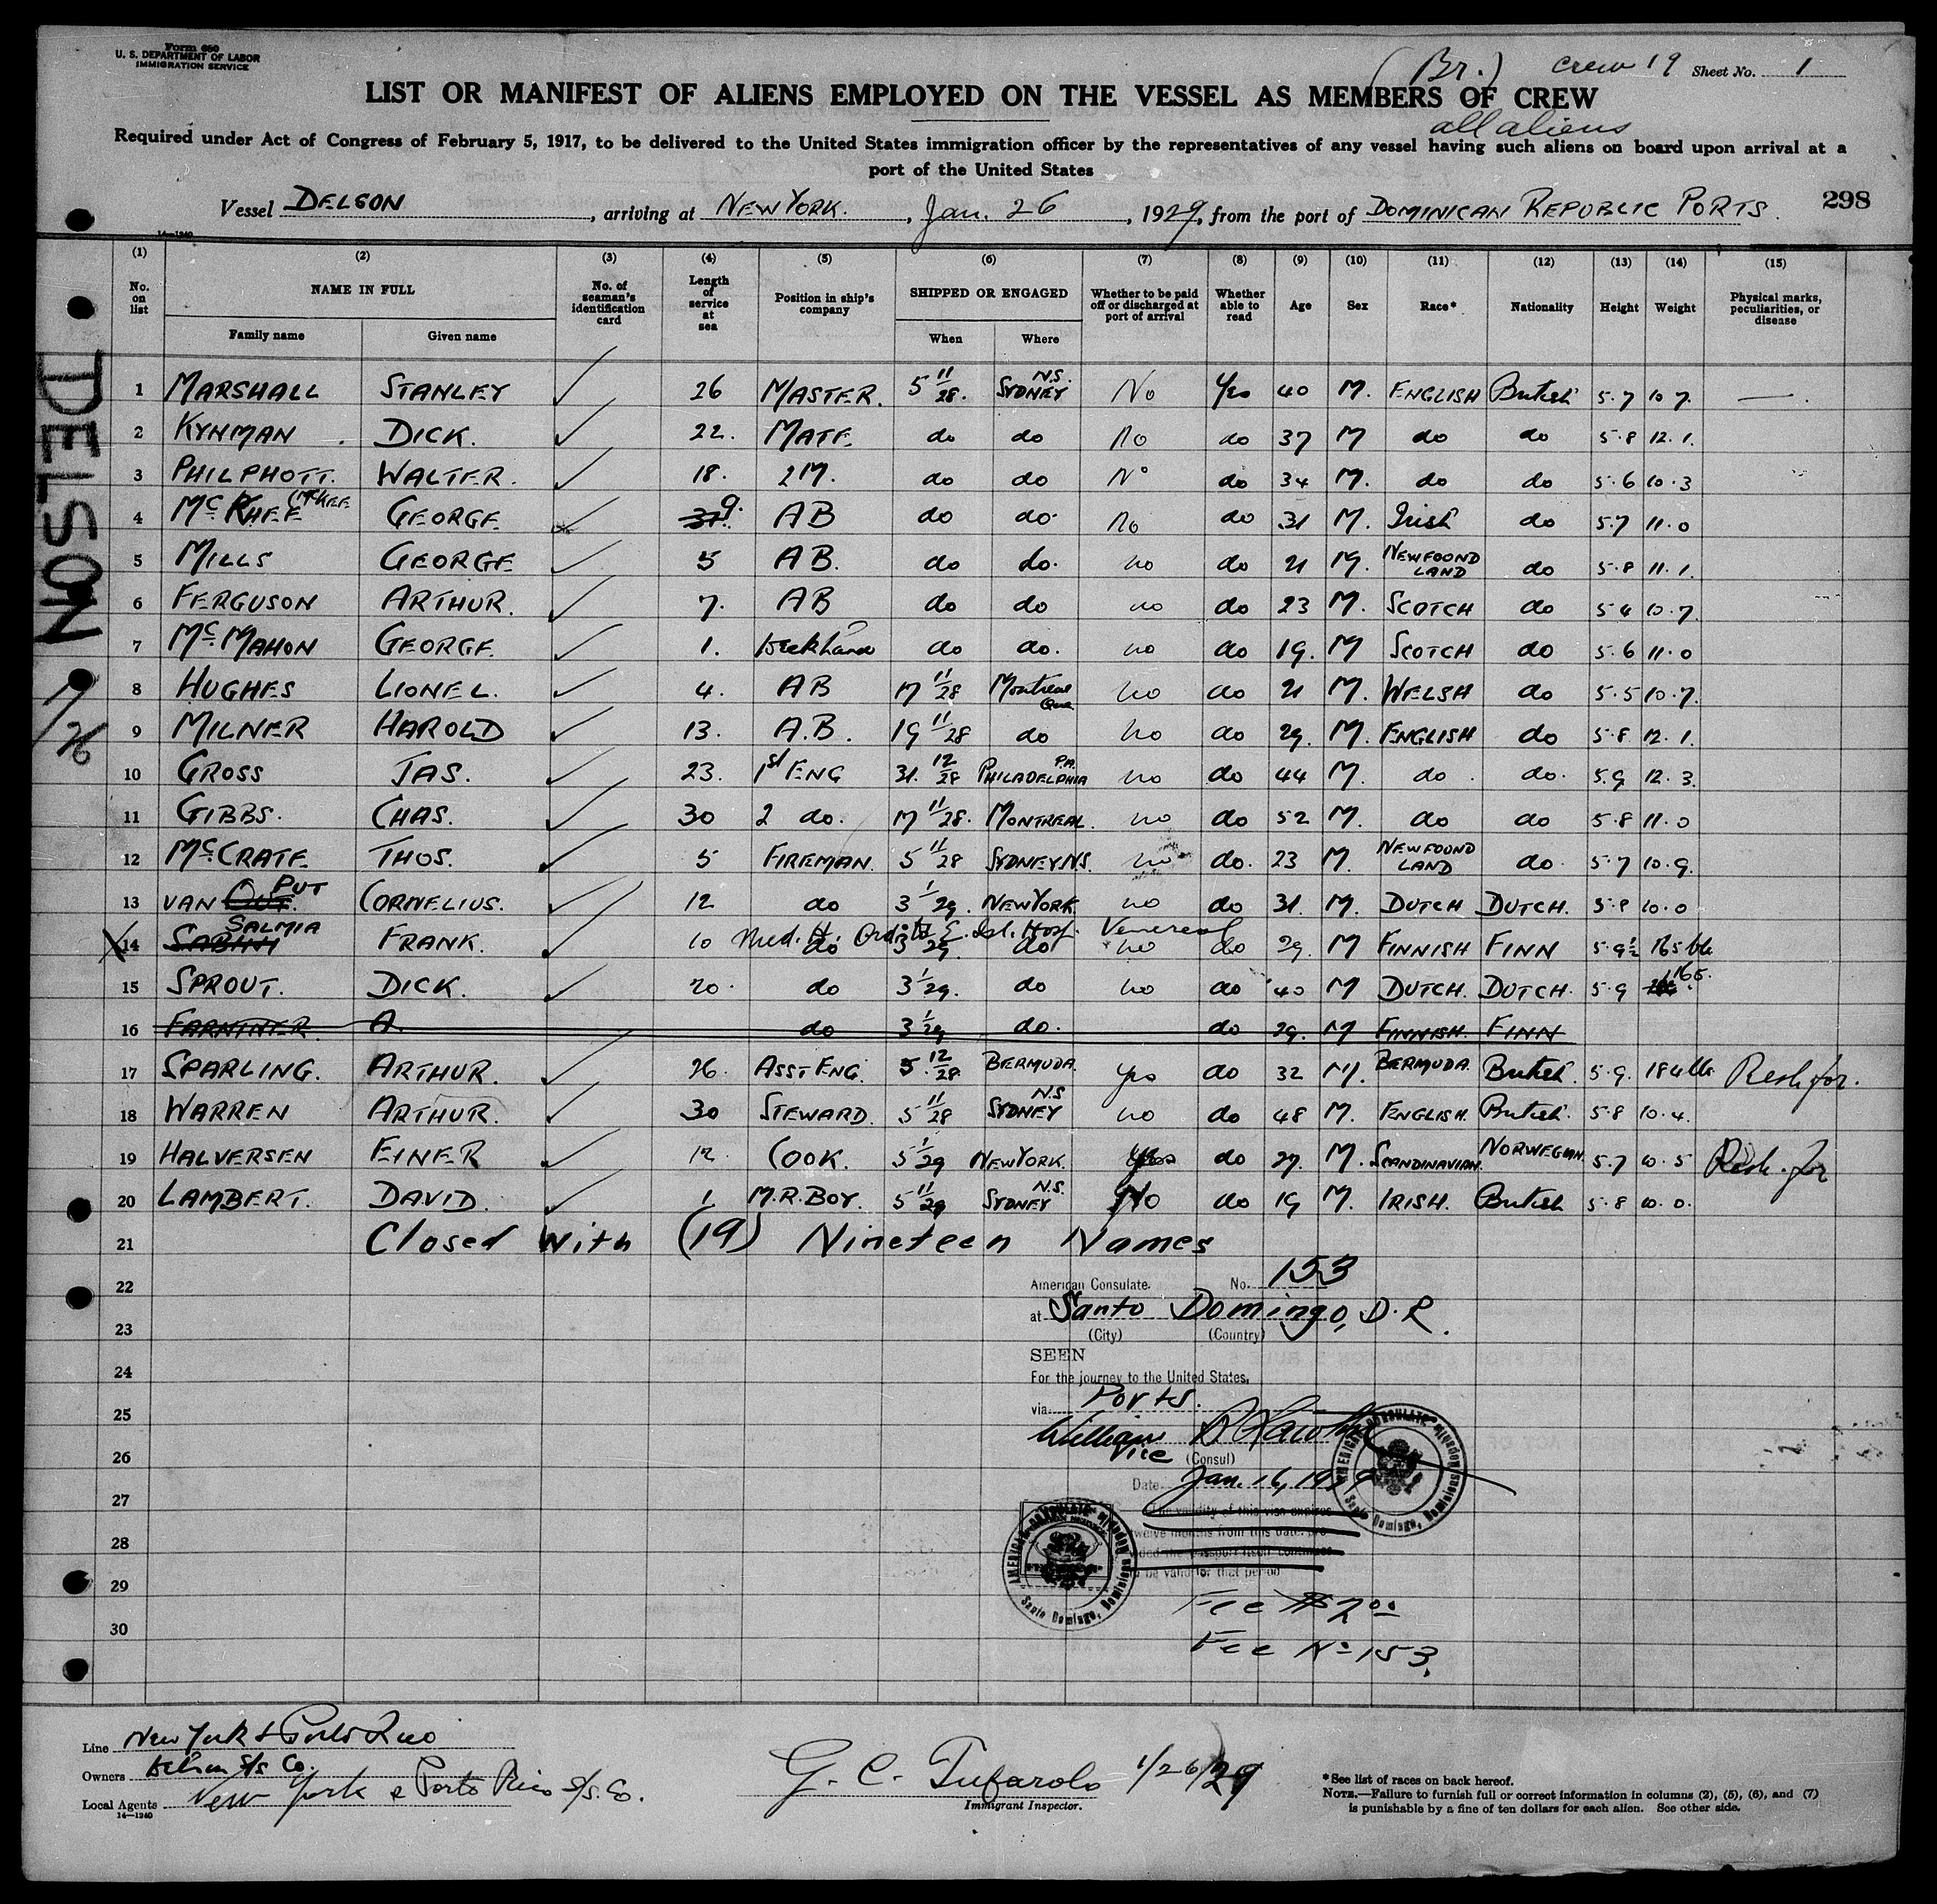 Form 680
U. S. DEPARTMENT OF LABOR
IMMIGRATION SERVICE
(Br.) crew 19 Sheet No. 1
LIST OR MANIFEST OF ALIENS EMPLOYED ON THE VESSEL AS MEMBERS OF CREW
all aliens
Required under Act of Congress of February 5, 1917, to be delivered to the United States immigration officer by the representatives of any vessel having such aliens on board upon arrival at a
port of the United States
Vessel DELSON, arriving at NEW YORK., Jan. 26, 1929, from the port of DOMINICAN REPUBLIC PORTS. 298
14-1240
(1) (2) (3) (4) (5) (6) (7) (8) (9) (10) (11) (12) (13) (14) (15)
No. on list NAME IN FULL No. of seaman's identification card Length of service at sea Position in ship's company SHIPPED OR ENGAGED Whether to be paid off or discharged at port of arrival Whether able to read Age Sex Race* Nationality Height Weight Physical marks, peculiarities, or disease
Family name Given name When Where
DELSON 1/26
1 MARSHALL STANLEY 26 MASTER. 5 11/28. SYDNEY N.S. No Yes 40 M. ENGLISH British 5.7 10 7. —.
2 KYNMAN. DICK. 22. MATE. do do No do 37 M do do 5.8 12.1.
3 PHILPHOTT. WALTER. 18. 2M. do do No do 34 M. do do 5.6 10.3
4 McKHEE (McKEE GEORGE 9. AB do do. No do 31 M. Irish do 5.7 11.0
5 MILLS GEORGE 5 AB. do do. no do 21 M. NEWFOOND LAND do 5.8 11.1.
6 FERGUSON ARTHUR. 7. AB do do no do 23 M. SCOTCH do 5.4 10.7.
7 McMAHON GEORGE. 1. Deckhand do do. no do 19. M SCOTCH do 5.6 11.0
8 HUGHES LIONEL. 4. AB 17 11/28 Montreal Que no do 21 M. WELSH do 5.5 10.7.
9 MILNER HAROLD 13. A.B. 19 11/28 do no do 29. M. ENGLISH do 5.8 12.1.
10 GROSS JAS. 23. 1st ENG 31. 12/28 PHILADELPHIA P.A. no do 44 M. do do. 5.9 12.3.
11 GIBBS. CHAS. 30 2 do. 17 11/28. MONTREAL. no do 52 M. do do 5.8 11.0
12 McCRATE THOS. 5 FIREMAN. 5 11/28 SYDNEY N.S. no do. 23 M. NEWFOOND LAND do 5.7 10.9.
13 VAN PUT CORNELIUS. 12 do 3 1/29. NEW YORK. no do 31. M. DUTCH DUTCH. 5.8 10.0
Med. H. Ord. to E. Isl. Hosp. Venereal
X 14 SABINI SALMIA FRANK. 10 do 3 1/29. do no do 29. M FINNISH FINN 5.9½ 165 lbs
15 SPROUT. DICK. 20. do 3 1/29. do no do 40 M DUTCH. DUTCH. 5.9 165.
16 FARNINER A. do 3 1/29 do. do 29. M FINNISH. FINN
17 SPARLING. ARTHUR. 26. ASST ENG. 5. 12/28 BERMUDA. yes do 32 M. BERMUDA. British. 5.9. 184 lbs
18 WARREN ARTHUR. 30 STEWARD. 5 11/28 SYDNEY N.S no do 48 M. ENGLISH. British. 5.8 10.4.
19 HALVERSEN EINER 12. COOK. 5 1/29 NEW YORK. Yes do 27. M. SCANDINAVIAN. NORWEGIAN. 5.7 10.5
20 LAMBERT. DAVID. 1. M.R. BOY. 5 11/29 SYDNEY N.S. No do 19 M. IRISH. British 5.8 10.0.
21 Closed with (19) Nineteen Names
22
23
24
25
26
27
28
29
30
American Consulate. No. 153
at Santo Domingo, D.R.
(City) (Country)
SEEN
For the journey to the United States,
via Ports.
William
Vice (Consul)
Date Jan. 16, 1929
The validity of this visa expires
twelve months from this date, pro-
vided the passport itself continues
to be valid for that period
Fee $2.00
Fee No 153.
Line New York & Porto Rico
Owners Delson S/s Co.
Local Agents New York & Porto Rico S/S. Co.
14-1240
G. C. Tufarolo 1/26/29
Immigrant Inspector.
*See list of races on back hereof.
NOTE.—Failure to furnish full or correct information in columns (2), (5), (6), and (7)
is punishable by a fine of ten dollars for each alien. See other side.